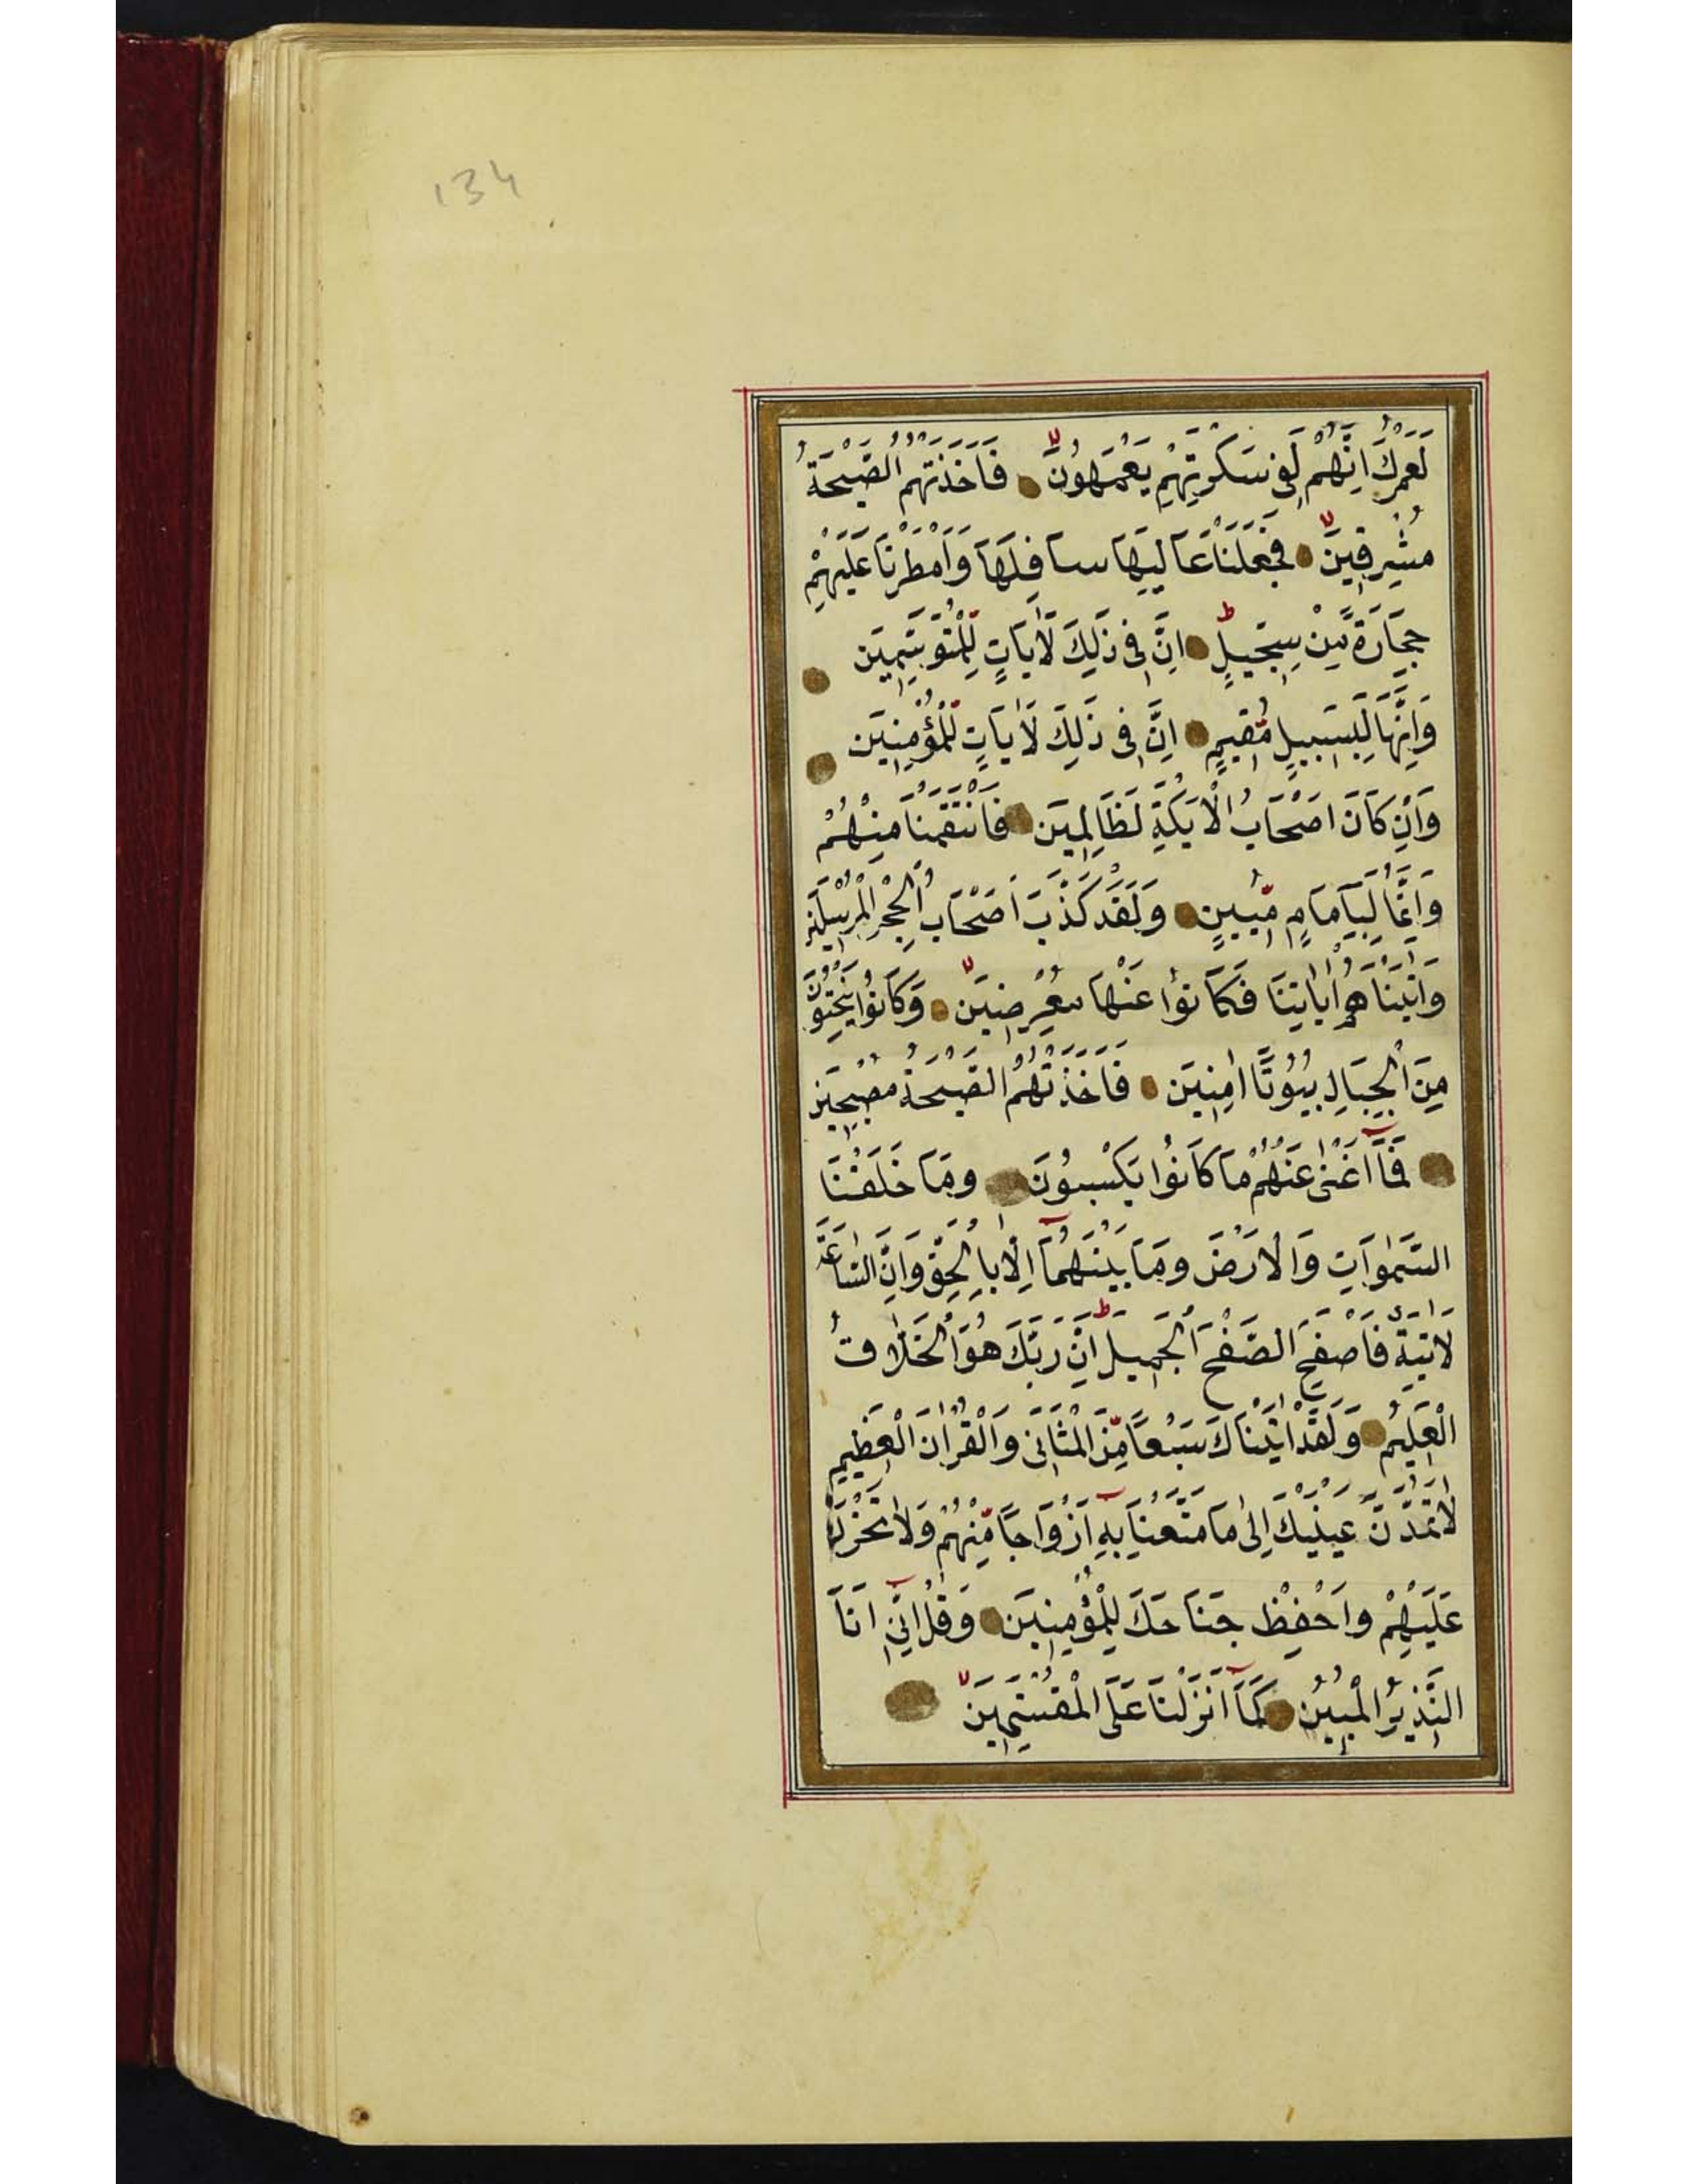 134
لَعَمْرُكَ اِنَّهُمْ لَفِى سَكْرَتِهِمْ يَعْمَهُونَ فَاَخَذَتْهُمُ الصَّيْحَةُ
مُشْرِقِينَ فَجَعَلْنَا عَالِيَهَا سَافِلَهَا وَاَمْطَرْنَا عَلَيْهِمْ
حِجَارَةً مِّنْ سِجِّيلٍ اِنَّ فِى ذٰلِكَ لَاٰيَاتٍ لِّلْمُتَوَسِّمِينَ
وَاِنَّهَا لَبِسَبِيلٍ مُّقِيمٍ اِنَّ فِى ذٰلِكَ لَاٰيَاتٍ لِّلْمُؤْمِنِينَ
وَاِنْ كَانَ اَصْحَابُ الْاَيْكَةِ لَظَالِمِينَ فَانْتَقَمْنَا مِنْهُمْ
وَاِنَّهُمَا لَبِاِمَامٍ مُّبِينٍ وَلَقَدْ كَذَّبَ اَصْحَابُ الْحِجْرِ الْمُرْسَلِينَ
وَاٰتَيْنَاهُمْ اٰيَاتِنَا فَكَانُوا عَنْهَا مُعْرِضِينَ وَكَانُوا يَنْحِتُونَ
مِنَ الْجِبَالِ بُيُوتًا اٰمِنِينَ فَاَخَذَتْهُمُ الصَّيْحَةُ مُصْبِحِينَ
فَمَآ اَغْنٰى عَنْهُمْ مَا كَانُوا يَكْسِبُونَ وَمَا خَلَقْنَا
السَّمٰوَاتِ وَالْاَرْضَ وَمَا بَيْنَهُمَآ اِلَّا بِالْحَقِّ وَاِنَّ السَّاعَةَ
لَاٰتِيَةٌ فَاصْفَحِ الصَّفْحَ الْجَمِيلَ اِنَّ رَبَّكَ هُوَ الْخَلَّاقُ
الْعَلِيمُ وَلَقَدْ اٰتَيْنَاكَ سَبْعًا مِّنَ الْمَثَانِى وَالْقُرْاٰنَ الْعَظِيمَ
لَا تَمُدَّنَّ عَيْنَيْكَ اِلٰى مَا مَتَّعْنَا بِهٖٓ اَزْوَاجًا مِّنْهُمْ وَلَا تَحْزَنْ
عَلَيْهِمْ وَاخْفِضْ جَنَاحَكَ لِلْمُؤْمِنِينَ وَقُلْ اِنِّىٓ اَنَا
النَّذِيرُ الْمُبِينُ كَمَآ اَنْزَلْنَا عَلَى الْمُقْتَسِمِينَ